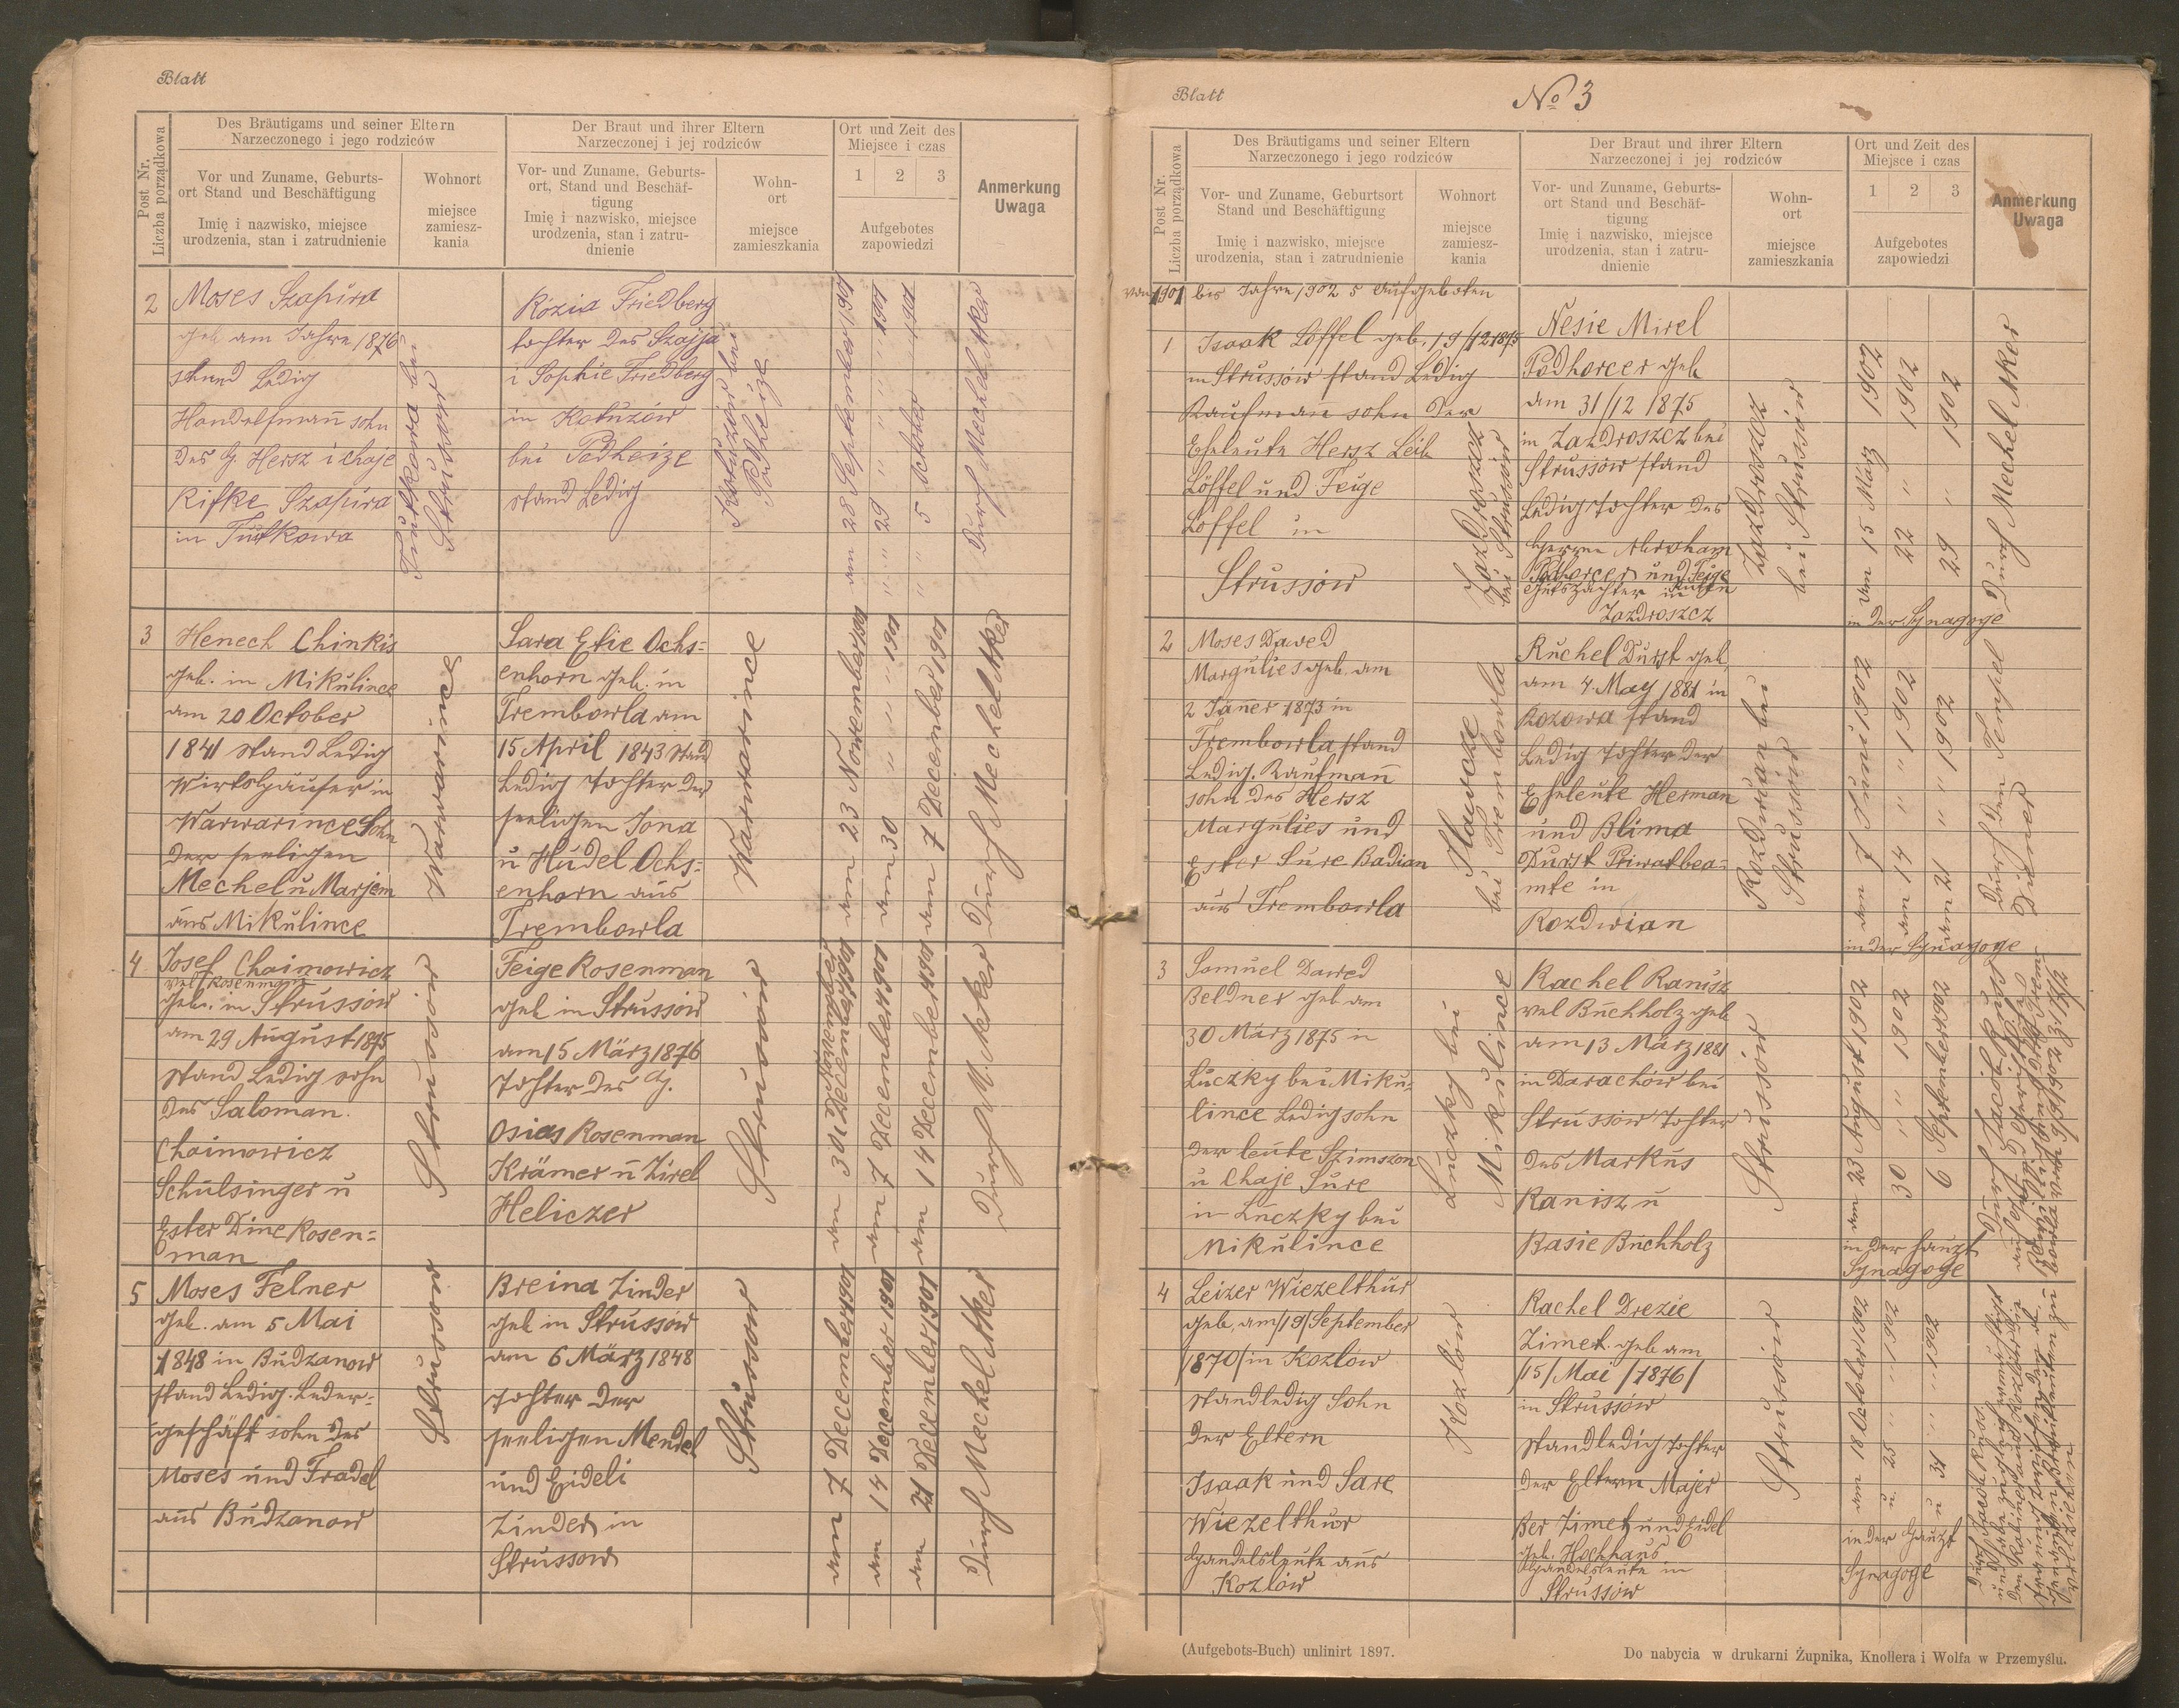 Blatt
Post Nr.
Liczba porządkowa
Des Bräutigams und seiner Eltern
Narzeczonego i jego rodziców
Vor und Zuname, Geburts-
ort Stand und Beschäftigung
Imię i nazwisko, miejsce
urodzenia, stan i zatrudnienie
Wohnort
miejsce
zamiesz-
kania
Der Braut und ihrer Eltern
Narzeczonej i jej rodziców
Vor- und Zuname, Geburts-
ort, Stand und Beschäf-
tigung
Imię i nazwisko, miejsce
urodzenia, stan i zatru-
dnienie
Wohn-
ort
miejsce
zamieszkania
Ort und Zeit des
Miejsce i czas
1 2 3
Aufgebotes
zapowiedzi
Anmerkung
Uwaga
2
Moses Szapira
geb am Jahre 1876
stand Ledig
Handelsmann sohn
des H. Hersz i Chaje
Rifke Szapira
in Tiutkowa
Tiutkowa bei
Strussow
Rózia Friedberg
tochter des Szajja
i Sophie Friedberg
in Kotuzów
bei Podheize
stand Ledig
Kotuzów bei
Podheize
am 28 September 1901
" " 29 " " 1901
" " 5 October 1901
Durch Mechel Aker
3
Henech Chinkis
geb. in Mikulince
am 20 October
1841 stand Ledig
Wirtshäuser in
Warwarince Sohn
der seeligen
Mechel u Marjem
aus Mikulince
Warwarince
Sara Etie Ochs=
enhorn geb. in
Trembowla am
15 April 1843 stand
Ledig tochter der
seeligen Jona
u Hudel Ochs=
enhorn aus
Trembowla
Warwarince
am 23 November 1901
am 30 " " 1901
am 7 December 1901
Durch Mechel Aker
4
Josef Chaimowicz
vel Rosenman
geb. in Strussów
am 29 August 1875
stand Ledig sohn
des Saloman
Chaimowicz
Schulsinger u
Ester Dine Rosen=
man
Strussów
Feige Rosenman
geb in Strussów
am 15 März 1876
tochter des H.
Osias Rosenman
Krämer u Zirel
Heliczer
Strussów
am 30 November 1901
am 7 December 1901
am 14 December 1901
Durch M. Aker
5
Moses Felner
geb. am 5 Mai
1848 in Budzanow
stand Ledig. Leder=
geschäft sohn des
Moses und Fradel
aus Budzanow
Strussow
Breina Zinder
geb in Strussów
am 6 März 1848
tochter der
seeligen Mendel
und Eideli
Zinder in
Strussow
Strussow
am 7 December 1901
am 14 December 1901
am 21 December 1901
Durch Mechel Aker
Blatt
No 3
Post Nr.
Liczba porządkowa
Des Bräutigams und seiner Eltern
Narzeczonego i jego rodziców
Vor- und Zuname, Geburtsort
Stand und Beschäftigung
Imię i nazwisko, miejsce
urodzenia, stan i zatrudnienie
Wohnort
miejsce
zamiesz-
kania
Der Braut und ihrer Eltern
Narzeczonej i jej rodziców
Vor- und Zuname, Geburts-
ort Stand und Beschäf-
tigung
Imię i nazwisko, miejsce
urodzenia, stan i zatru-
dnienie
Wohn-
ort
miejsce
zamieszkania
Ort und Zeit des
Miejsce i czas
1 2 3
Aufgebotes
zapowiedzi
Anmerkung
Uwaga
von 1901 bis Jahre 1902 5 Aufgeboten
1
Isaak Löffel geb. 19/12 1875
in Strussów stand Ledig
Kaufmann sohn der
Eheleute Hersz Leib
Löffel und Feige
Löffel in
Strussów
Zazdroszcz
bei Strussów
Nesie Mirel
Podhorcer geb
am 31/12 1875
in Zazdroszcz bei
Strussów stand
Ledig tochter des
Herrn Abraham
Podhorcer und Feige
Gutspächter in
Zazdroszcz
Zazdroszcz
bei Strussów
am 15 März 1902
22 " 1902
29 " 1902
in der Synagoge
Durch Mechel Aker
2
Moses Dawed
Margulies geb. am
2 Janer 1873 in
Trembowla stand
Ledig. Kaufmann
sohn des Hersz
Margulies und
Ester Sure Badian
aus Trembowla
Ilawcze
bei Trembowla
Ruchel Durst geb
am 4. May 1881 in
Kozowa stand
Ledig tochter der
Eheleute Herman
und Blima
Durst Priwatbea=
mte in
Rozdwian
Rozdwian bei
Strussów
am 7 Juni 1902
am 14 " " 1902
am 21 " " 1902
in der Synagoge
Durch den Tempel
Diener
3
Samuel Dawed
Beldner geb am
30 März 1875 in
Luczky bei Miku=
lince Ledig sohn
der leute Szimszon
u Chaje Sure
in Luczky bei
Mikulince
Luczky bei
Mikulince
Rachel Ranisz
vel Buchholz geb
am 13 März 1881
in Darachów bei
Strussow tochter
des Markus
Ranisz u
Basie Buchholz
Strussów
am 23 August 1902
30 " " 1902
6 September 1902
in der Haupt
Synagoge
Durch Jacob Kurz
4
Leizer Wiezelthur
geb. am /19/ September
/1870/ in Kozlów
stand ledig Sohn
der Eltern
Isaak und Sare
Wiezelthur
Handelsleute aus
Kozlów
Kozlów
Rachel Drezie
Zimet. geb am
/15/ Mai /1876/
in Strussów
stand ledig tochter
der Eltern Majer
Ber Zimet und Eidel
geb. Hochhaus
Handelsleute in
Strussów
Strussów
am 18 October 1902
u. 25 " " 1902
u 31 " " 1902
in der Haupt
Synagoge
Durch Jacob Kurz
(Aufgebots-Buch) unlinirt 1897.
Do nabycia w drukarni Żupnika, Knollera i Wolfa w Przemyślu.